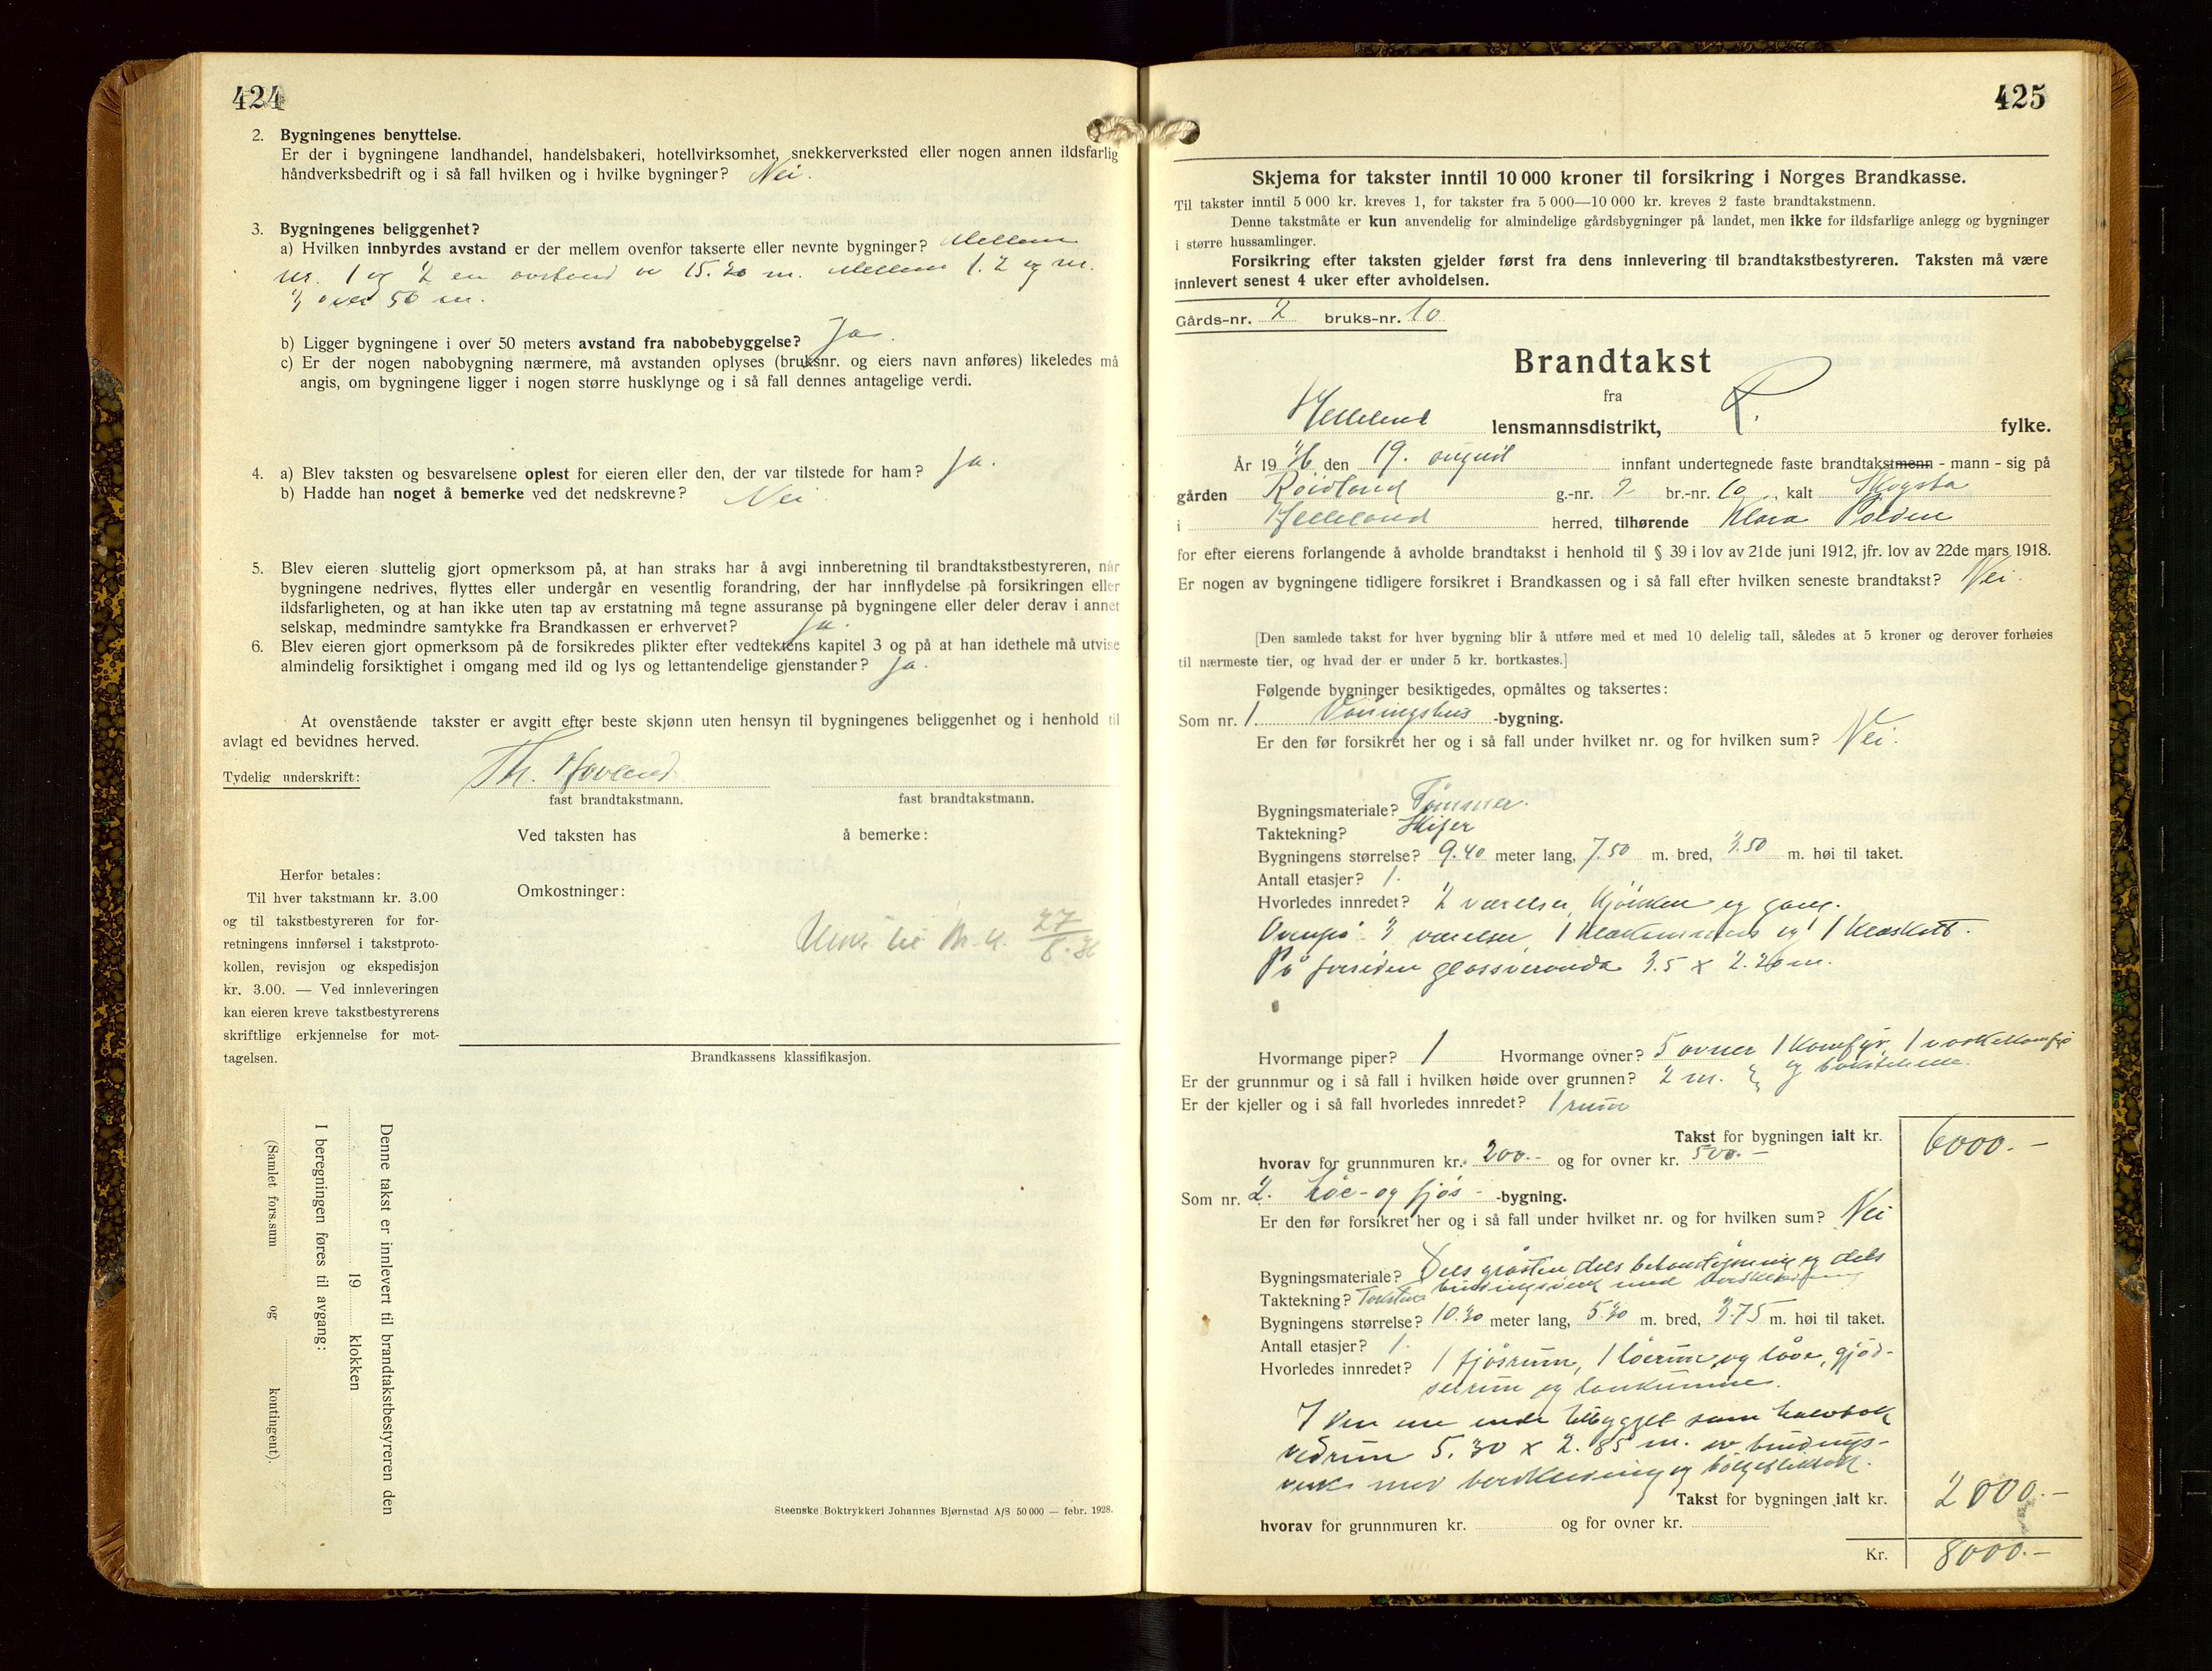 424
2. Bygningenes benyttelse.
Er der i bygningene landhandel, handelsbakeri, hotellvirksomhet, snekkerverksted eller nogen annen ildsfarlig
håndverksbedrift og i så fall hvilken og i hvilke bygninger? Nei.
3. Bygningenes beliggenhet?
a) Hvilken innbyrdes avstand er der mellem ovenfor takserte eller nevnte bygninger? Mellem
nr. 1 og 2 en avstand av 15.30 m. Mellem 1. 2 og nr.
3 over 50 m.
b) Ligger bygningene i over 50 meters avstand fra nabobebyggelse? Ja.
c) Er der nogen nabobygning nærmere, må avstanden oplyses (bruksnr. og eiers navn anføres) likeledes må
angis, om bygningene ligger i nogen større husklynge og i så fall dennes antagelige verdi.
4. a) Blev taksten og besvarelsene oplest for eieren eller den, der var tilstede for ham? Ja.
b) Hadde han noget å bemerke ved det nedskrevne? Nei
5. Blev eieren sluttelig gjort opmerksom på, at han straks har å avgi innberetning til brandtakstbestyreren, når
bygningene nedrives, flyttes eller undergår en vesentlig forandring, der har innflydelse på forsikringen eller
ildsfarligheten, og at han ikke uten tap av erstatning må tegne assuranse på bygningene eller deler derav i annet
selskap, medmindre samtykke fra Brandkassen er erhvervet? Ja.
6. Blev eieren gjort opmerksom på de forsikredes plikter efter vedtektens kapitel 3 og på at han idethele må utvise
almindelig forsiktighet i omgang med ild og lys og lettantendelige gjenstander? Ja.
At ovenstående takster er avgitt efter beste skjønn uten hensyn til bygningenes beliggenhet og i henhold til
avlagt ed bevidnes herved.
Tydelig underskrift: Th. Hovland
fast brandtakstmann. fast brandtakstmann.
Ved taksten has å bemerke:
Herfor betales:
Til hver takstmann kr. 3.00
og til takstbestyreren for for-
retningens innførsel i takstproto-
kollen, revisjon og ekspedisjon
kr. 3.00. — Ved innleveringen
kan eieren kreve takstbestyrerens
skriftlige erkjennelse for mot-
tagelsen.
Omkostninger:
27/8.36
Brandkassens klassifikasjon.
Denne takst er innlevert til brandtakstbestyreren den
19 klokken
I beregningen føres til avgang:
(Samlet fors.sum og kontingent).
Steenske Boktrykkeri Johannes Bjørnstad A/S 50 000 — febr. 1928.
425
Skjema for takster inntil 10 000 kroner til forsikring i Norges Brandkasse.
Til takster inntil 5 000 kr. kreves 1, for takster fra 5 000—10 000 kr. kreves 2 faste brandtakstmenn.
Denne takstmåte er kun anvendelig for almindelige gårdsbygninger på landet, men ikke for ildsfarlige anlegg og bygninger
i større hussamlinger.
Forsikring efter taksten gjelder først fra dens innlevering til brandtakstbestyreren. Taksten må være
innlevert senest 4 uker efter avholdelsen.
Gårds-nr. 2 bruks-nr. 10
Brandtakst
fra
Helleland lensmannsdistrikt, R. fylke.
År 1936 den 19. august innfant undertegnede faste brandtakstmenn - mann - sig på
gården Röidland g.-nr. 2 br.-nr. 10, kalt
i Helleland herred, tilhørende Klara
for efter eierens forlangende å avholde brandtakst i henhold til § 39 i lov av 21de juni 1912, jfr. lov av 22de mars 1918.
Er nogen av bygningene tidligere forsikret i Brandkassen og i så fall efter hvilken seneste brandtakst? Nei.
[Den samlede takst for hver bygning blir å utføre med et med 10 delelig tall, således at 5 kroner og derover forhøies
til nærmeste tier, og hvad der er under 5 kr. bortkastes.]
Følgende bygninger besiktigedes, opmåltes og taksertes:
Som nr. 1 Våningshus -bygning.
Er den før forsikret her og i så fall under hvilket nr. og for hvilken sum? Nei.
Bygningsmateriale? Tømmer.
Taktekning? Skifer
Bygningens størrelse? 9.40 meter lang, 7.50 m. bred, 3.50 m. høi til taket.
Antall etasjer? 1.
Hvorledes innredet? 2 værelser, kjökken og gang.
Ovenpå 3 værelser, 1 og 1 kleskott.
På forsiden glassveranda 3.5 x 2.20 m.
Hvormange piper? 1 Hvormange ovner? 5 ovner 1 komfyr, 1 vaskekomfyr
og bakstehelle.
Er der grunnmur og i så fall i hvilken høide over grunnen? 2 m.
Er der kjeller og i så fall hvorledes innredet? 1 rum
Takst for bygningen ialt kr. 6000.-
hvorav for grunnmuren kr. 200.- og for ovner kr. 500.-
Som nr. 2. Löe- og fjös- -bygning.
Er den før forsikret her og i så fall under hvilket nr. og for hvilken sum? Nei
Bygningsmateriale? Dels gråsten dels betongstøpning og dels
bindingsverk med bordkledning
Taktekning? Taksten
Bygningens størrelse? 10.30 meter lang, 5.30 m. bred, 3.75 m. høi til taket.
Antall etasjer? 1.
Hvorledes innredet? 1 fjösrum, 1 löerum og låve, gjöd-
selrum og landkumme.
I den ene ende tilbygget som halvtak
vedrum 5.30 x 2.85 m. av bindings-
verk med bordkledning og bölgeblikktak.
Takst for bygningen ialt kr. 2000.-
hvorav for grunnmuren kr. og for ovner kr.
Kr. 8000.-